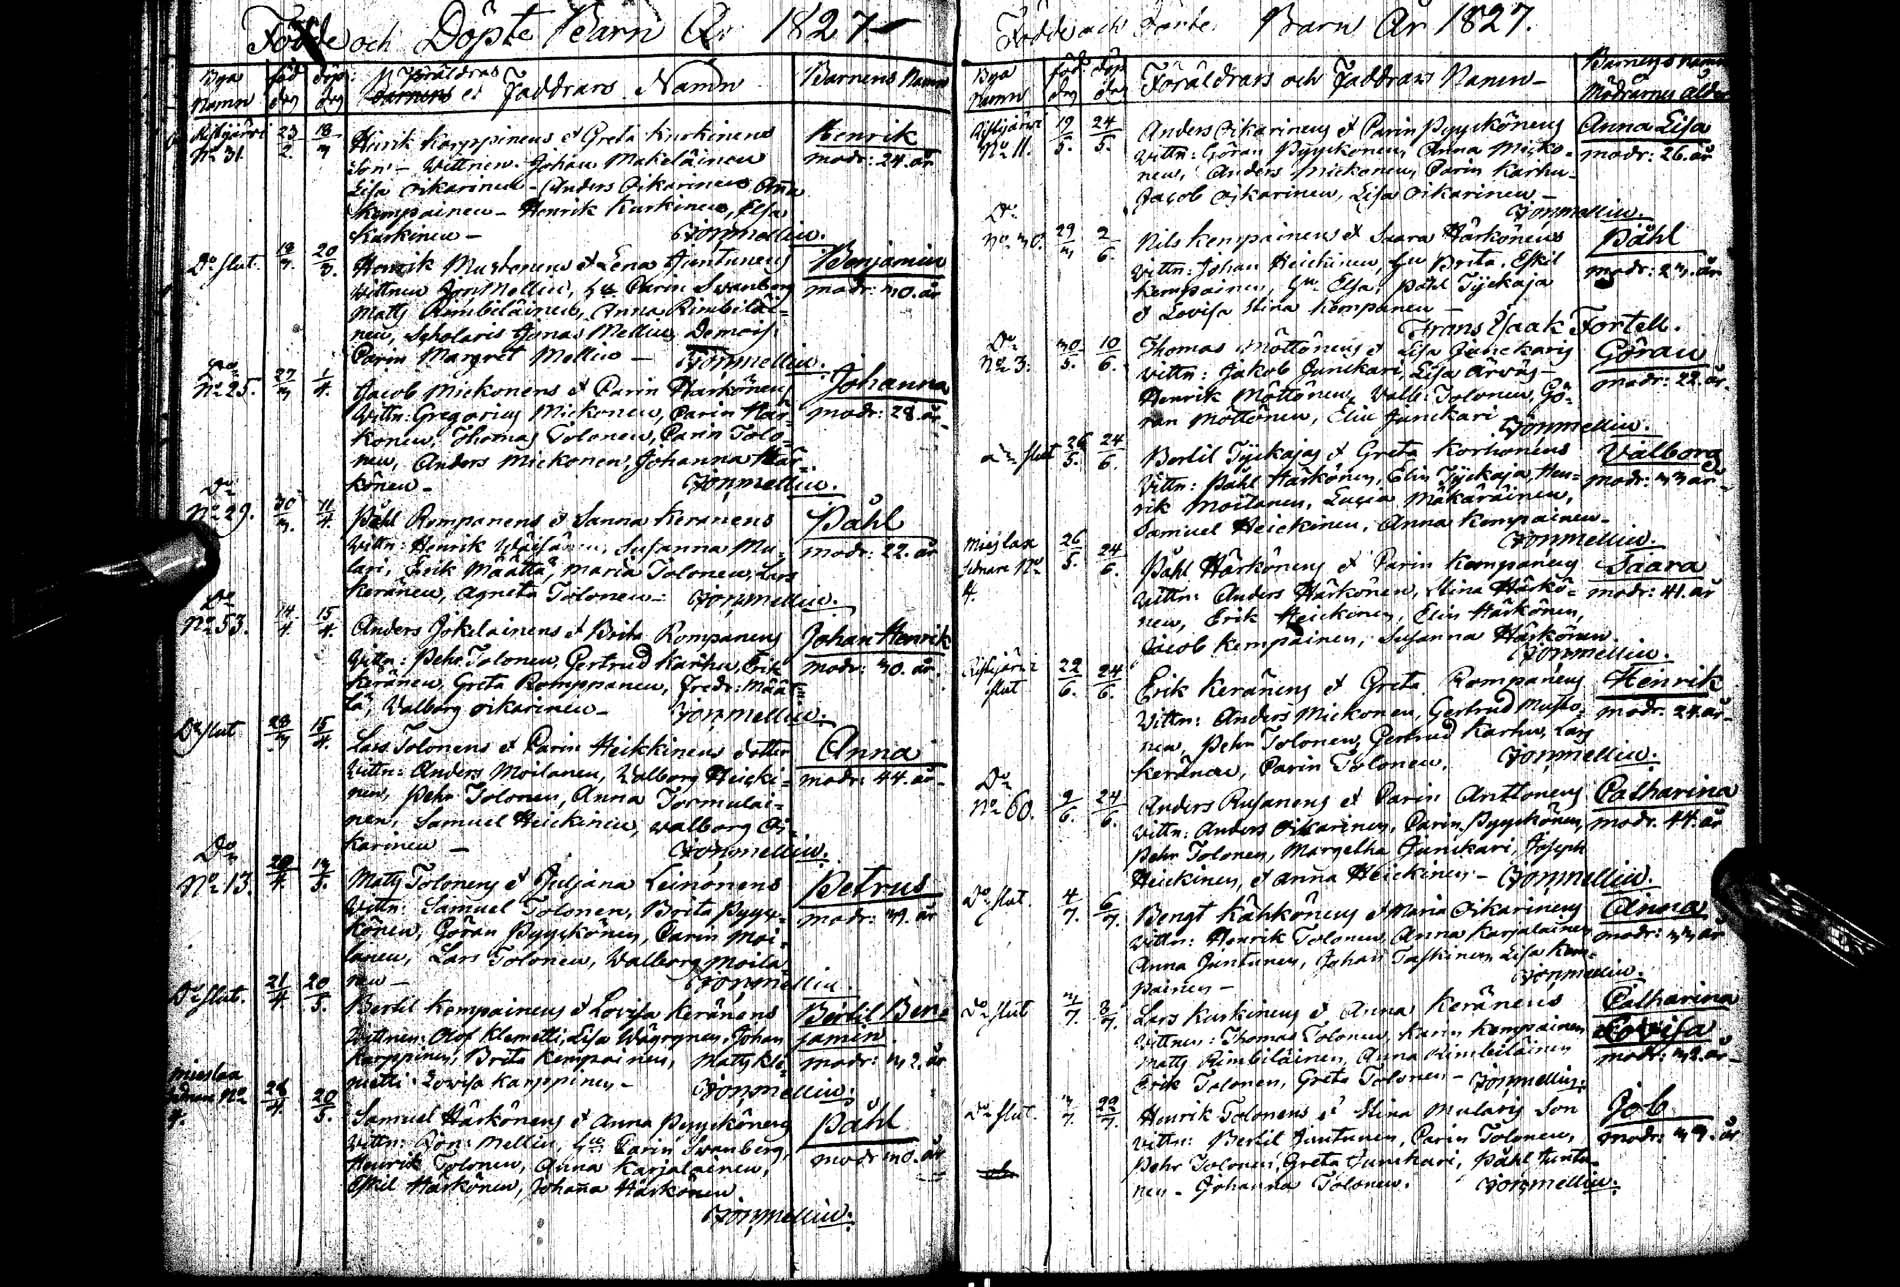 Födde och Döpte Barn År 1827.
Bya Namn
föd dag
döp: dag
Föräldras et Faddrars Namn
Barnens Namn
Ristijärvi N:o 31.
23/2.
18/3
Hinrik Karppinens et Greta Kurkinens
Son - Vittnen - Johan Makeläinen
Lisa Oikarinen - Anders Oikarinen Anna
Kempainen - Henrik Kurkinen, Elsa
Kurkinen -
Henrik
modr: 24. år
D:o slut.
18/3.
20/3.
Henrik Mustonens et Lena Huntunens
Vittnen Jon Mellin, Carin Swanberg
Matts Rimbiläinen, Anna Rimbiläi=
nen, Scholaris Jonas Mellin, Demois
Carin Margret Mellin -
Benjamin
modr: 30. år
D:o N:o 25.
27/3
1/4.
Jacob Mickonens et Carin Harkönens
Vittn: Gregorius Mickonen, Carin Här=
könen, Thomas Tolonen, Carin Tolo=
nen, Anders Mickonen, Johanna Här=
könen -
Johanna
modr: 28. år
D:o N:o 29.
30/3.
11/4.
Påhl Rompanens et Sanna Keränens
Vittn: Henrik Susanna Mu=
lari, Erik Määttä, Maria Tolonen, Lars
Keränen, Agneta Tolonen -
Påhl
modr: 22. år
D:o N:o 53.
14/4.
15/4.
Anders Jokelainens et Brita Rompanens
Vittn: Pehr Tolonen, Gertrud Karhu, Erik
Keränen, Greta Romppanen, Fredr: Määt=
tä, Walborg Oikarinen -
Johan Henrik
modr: 30. år
D:o slut
28/3
15/4.
Lars Tolonens et Carin Heikkinens dotter
Vittn: Anders Moilanen, Walborg Heicki=
nen, Pehr Tolonen, Anna Tormulai=
nen, Samuel Heickinen, Walborg Oi=
karinen -
Anna
modr: 44. år
D:o N:o 13.
20/4.
13/5.
Matts Tolonens et Juljana Leinonens
Vittn: Samuel Tolonen, Brita Pyyc=
könen, Göran Pyyckönen, Carin Moi=
lanen, Lars Tolonen, Walborg Moila=
nen -
Petrus
modr: 39. år
D:o slut.
21/4.
20/5.
Bertil Kempainens et Lovisa Keränens
Vittnen: Olof Klemetti, Lisa Wäyrynen, Johan
Karppinen, Brita Kempainen, Matts Kle=
metti Lovisa Karppinen -
Bertil Ben=
jamin
modr: 32. år
Mieslax N:o 4.
28/4.
20/5.
Samuel Härkönens et Anna Pyyckönens
Vittn: Jon: Mellin, Carin Swanberg,
Henrik Tolonen, Anna Karjalainen,
Eskil Härkönen, Johanna Härkönen
Påhl
modr 30. år
Jon Mellin.
Födde och Döpte Barn År 1827.
Bya Namn
föd dag
döp dag
Föräldrars och Faddrars Namn -
Barnens namn
Mödrarnes ålder
Ristijärvi N:o 11.
19/5.
24/5.
Anders Oikarinens et Carin Pyyckönens
Vittn: Göran Pyyckonen, Anna Micko=
nen, Anders Mickonen, Carin Karhu -
Jacob Oikarinen, Lisa Oikarinen -
Jon Mellin.
Anna Lisa
modr: 26. år
D:o N:o 30.
29/3
2/6.
Nils Kempainens et Saara Härkönens
Vittn: Johan Heickinen, Brita. Eskil
Kempainen, Elsa, Påhl Tyickaja
et Lovisa Stina Kempanen -
Frans Isaak Fortell.
Påhl
modr: 23. år
D:o N:o 3.
30/5.
10/6.
Thomas Möttönens et Lisa Junckaris
Vittn: Jakob Junckari, Lisa
Henrik Möttönen, Valb: Tolonen, Gö=
ran Möttönen, Elin Junckari
Jon Mellin.
Göran
modr: 22. år
D:o slut
26/5.
24/6.
Bertil Tyickajas et Greta Korhonens
Vittn: Påhl Härkönen, Elin Tyickaja, Hen=
rik Moilanen, Lucia Mäkäräinen,
Samuel Heickinen, Anna Kempainen -
Jon Mellin.
Valborg
modr: 33 år
Mieslax N:o 4.
26/5.
24/6.
Påhl Härkönens et Carin Kempanens
Vittn: Anders Härkönen, Stina Härkö=
nen, Erik Heickinen, Elin Härkönen,
Jacob Kempainen, Susanna Härkönen.
Jon Mellin.
Saara
modr: 41. år
Ristijärvi slut
22/6.
24/6.
Erik Keränens et Greta Rompanens
Vittn: Anders Mickonen, Gertrud Musto=
nen, Pehr Tolonen, Gertrud Karhu, Lars
Keränen, Carin Tolonen. Jon Mellin.
Henrik
modr. 24. år
D:o N:o 60.
9/6.
24/6.
Anders Rusanens et Carin Anttonens
Vittn: Anders Oikarinen, Carin Pyyckönen,
Pehr Tolonen, Margetha Junckari, Joseph
Heickinen, et Anna Heickinen - Jon Mellin.
Catharina
modr. 44. år
D:o slut
4/7.
6/7.
Bengt Kähkönens et Maria Oikarinens
Vittn: Henrik Tolonen, Anna Karjalainen
Anna Juntunen, Johan Taskinen, Lisa Kem=
painen -
Jon Mellin.
Anna
modr: 33 år
D:o slut
3/7.
8/7.
Lars Kurkinens et Anna Keränens
Vittnen: Thomas Tolonen, Karin Kempainen
Matts Rimbiläinen, Anna Rimbiläinen
Erik Tolonen, Greta Tolonen - Jon Mellin.
Catharina
Lovisa
modr: 32. år
D:o slut.
3/7.
22/7.
Henrik Tolonens et Stina Mularis Son
Vittn: Bertil Juntunen, Carin Tolonen,
Pehr Tolonen, Greta Junckari, Påhl Huntu=
nen - Johanna Tolonen. Jon Mellin.
Job
modr: 33. år